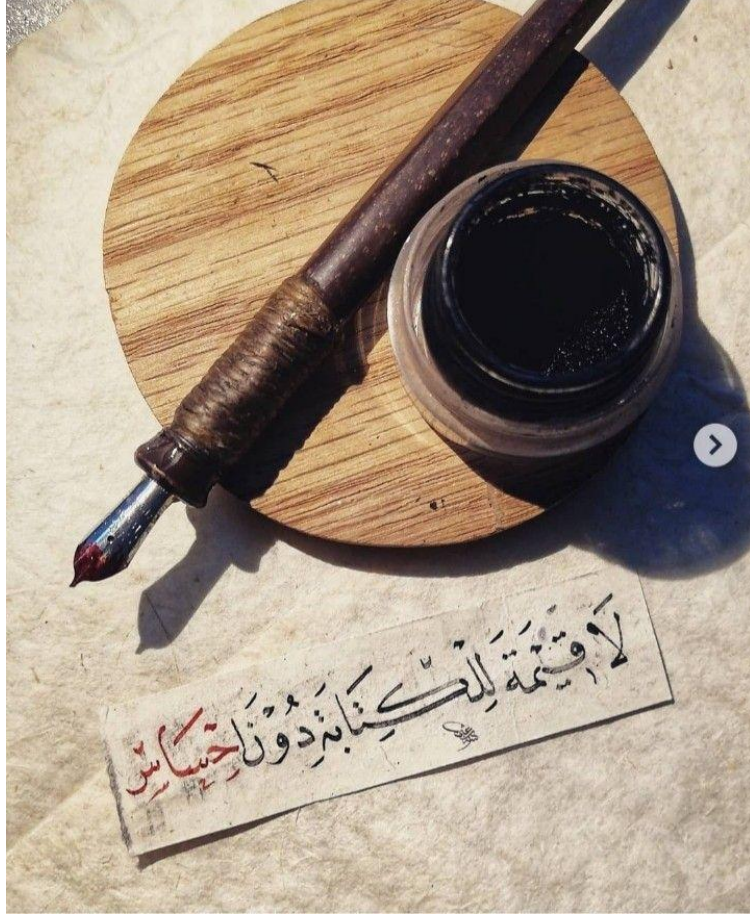 لَا قِيْمَةَ لِلْكِتَابَةِ دُوْنَ اِحْسَاسٍ